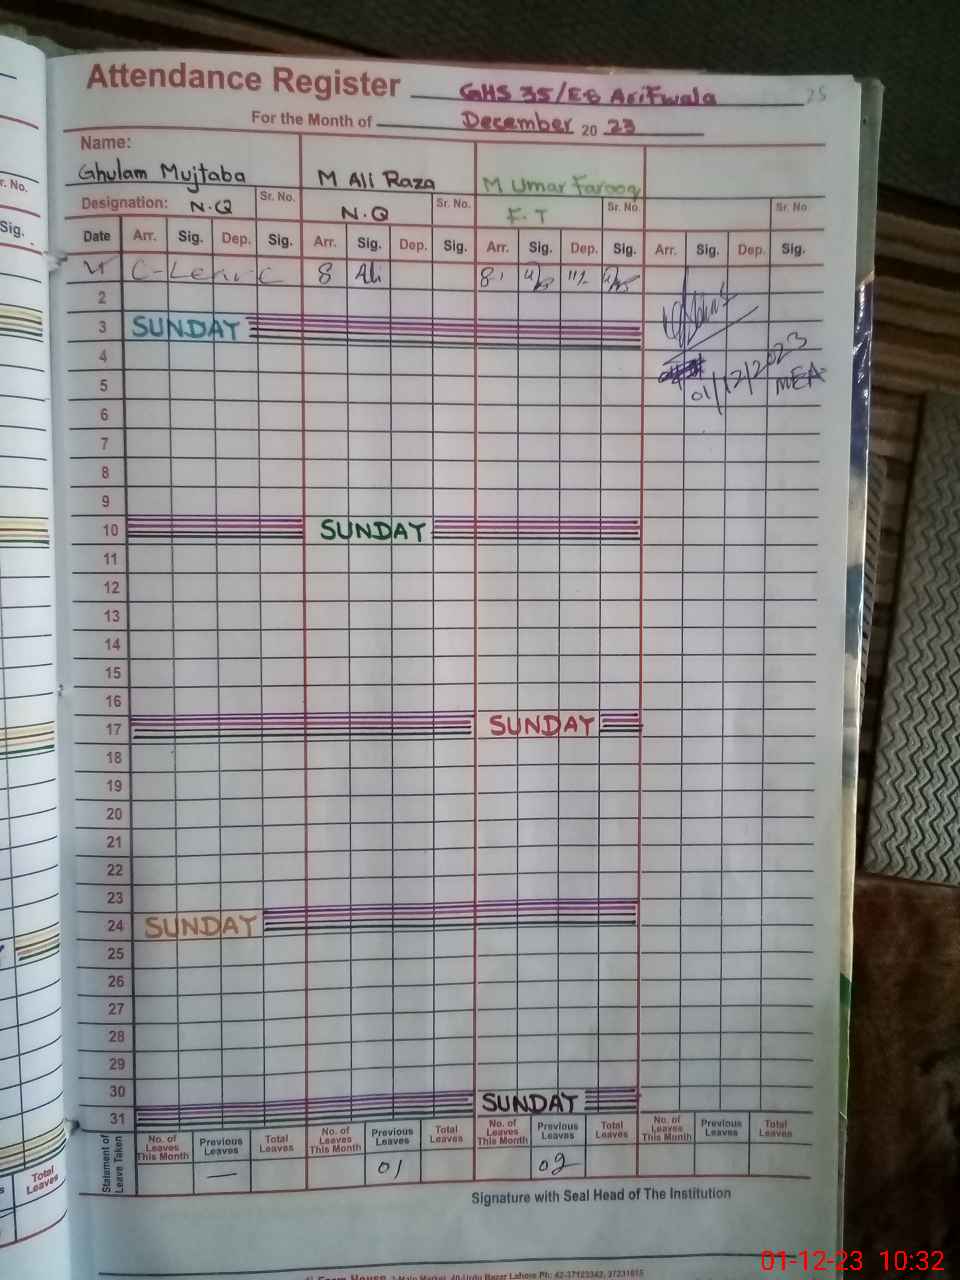 Attendance Register GHS 35/EB Arifwala 25
For the Month of December 20 23
Name:
Ghulam Mujtaba M Ali Raza M Umar Farooq
r. No. Designation: N.Q Sr. No. N.Q Sr. No. F.T Sr. No. Sr. No.
Sig. Date Arr. Sig. Dep. Sig. Arr. Sig. Dep. Sig. Arr. Sig. Dep. Sig. Arr. Sig. Dep. Sig.
C-Leave 8 Ali 8
2
3 SUNDAY
4
01/12/2023
5 MEA
6
7
8
9
10 SUNDAY
11
12
13
14
15
16
17 SUNDAY
18
19
20
21
22
23
24 SUNDAY
25
26
27
28
29
30
31 SUNDAY
Statament of Leave Taken
No. of Leaves This Month Previous Leaves Total Leaves No. of Leaves This Month Previous Leaves Total Leaves No. of Leaves This Month Previous Leaves Total Leaves No. of Leaves This Month Previous Leaves Total Leaves
— 01 02
Total Leaves
Signature with Seal Head of The Institution
Main Market, 40-Urdu Bazar Lahore Ph: 42-37123342, 37231815
01-12-23 10:32